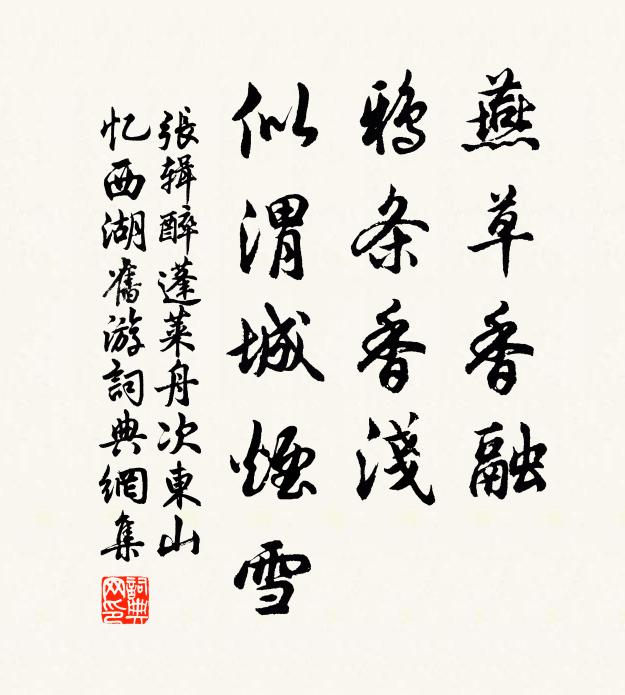 燕草香融
鸦条香淺
似渭城煙雪
張辑醉蓬萊舟次東山
忆西湖舊游詞典網集
詞典